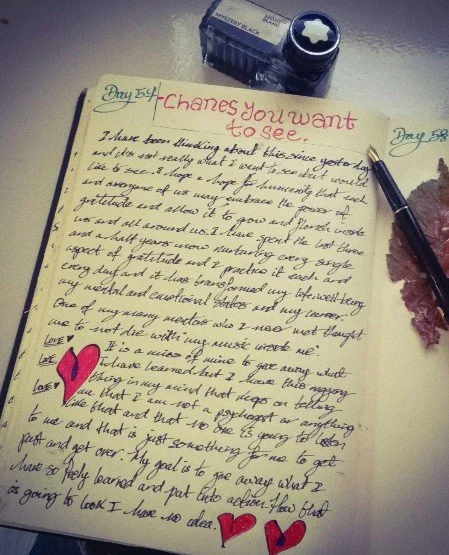 MYSTERY BLACK
MONT
BLANC
Day 54
Chanes You want
to see.
Day 58
I have been thinking about this since yesterday
and it's not really what I want to see but would
like to see. I hope a hope for humanity that each
and everyone of us may embrace the power of
gratitude and allow it to grow and flourish inside
us and all around us. I have spent the last three
and a half years now nurturing every single
aspect of gratitude and I practice it each and
every day and it has transformed my life, well being
my mental and emotional states and my career.
One of my many mentors who I never met thought
me to not die with my music inside me.
LOVE It is a miss of mine to give away what
LOVE I have learned but I have this nagging
LOVE thing in my mind that keeps on telling
me that I am not a psychogist or anything
like that and that no one is going to listen
to me and that is just something for me to get
past and get over. My goal is to give away what I
have so feely learned and put into action. How that
is going to look I have no idea.